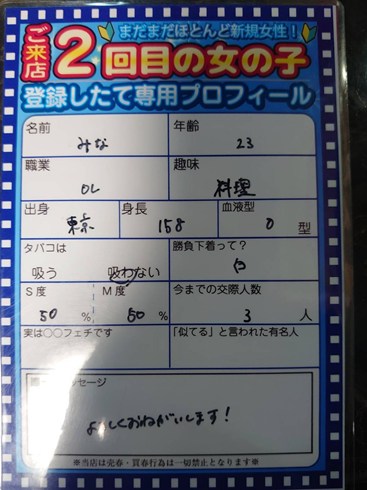 まだまだほとんど新規女性！
ご来店 2回目の女の子
登録したて専用プロフィール
名前 みな 年齢 23
職業 OL 趣味 料理
出身 東京 身長 158 血液型 O 型
タバコは 吸う 吸わない 勝負下着って？ 白
S度 50 % M度 50 % 今までの交際人数 3 人
実は○○フェチです 「似てる」と言われた有名人
セージ
よろしくおねがいします！
※当店は売春・買春行為は一切禁止となります※